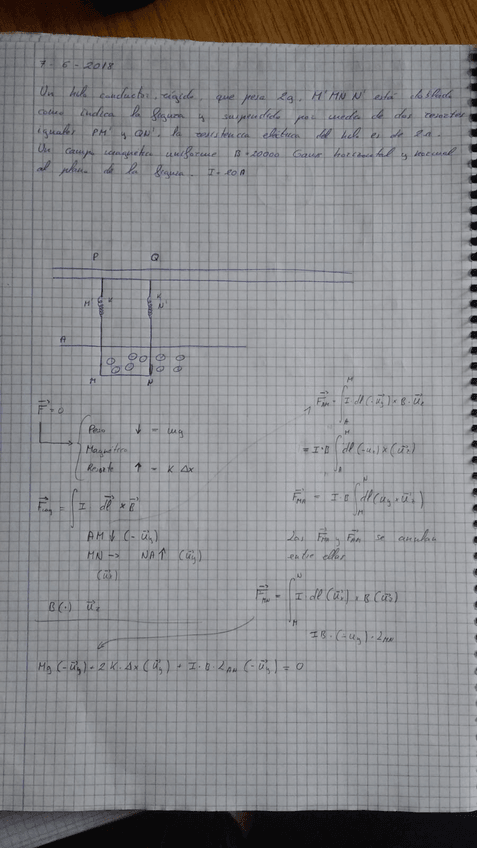 7-6-2018
Un hilo conductor rígido, que pesa 2g. M'MN N' está doblado
como indica la figura y suspendido por medio de dos
iguales PM' y QN'. La resistencia eléctrica del hilo es de
Un campo magnético uniforme B=20000 Gauss horizontal y normal
al plano de la figura. I=10A
P Q
M K K N'
A
M N
F⃗=0
Peso ↓ = mg
Magnética
↑ = K Δx
F⃗mg = ∫ I dl⃗ × B⃗
AM ↓ (-u⃗y)
MN → NA ↑ (u⃗y)
B(·) u⃗z
F⃗AM = ∫ I dl (-u⃗y) × B · u⃗z
= I·B ∫ dl (-uy) × (u⃗z)
= I B ∫ dl (uy × u⃗z)
Las y se anulan
entre ellas
F⃗MN = ∫ I · dl (u⃗x) × B (u⃗z)
I B · (-uy) ·
Mg (-u⃗y) + 2 K · Δx (u⃗y) + I · B · (-u⃗y) = 0